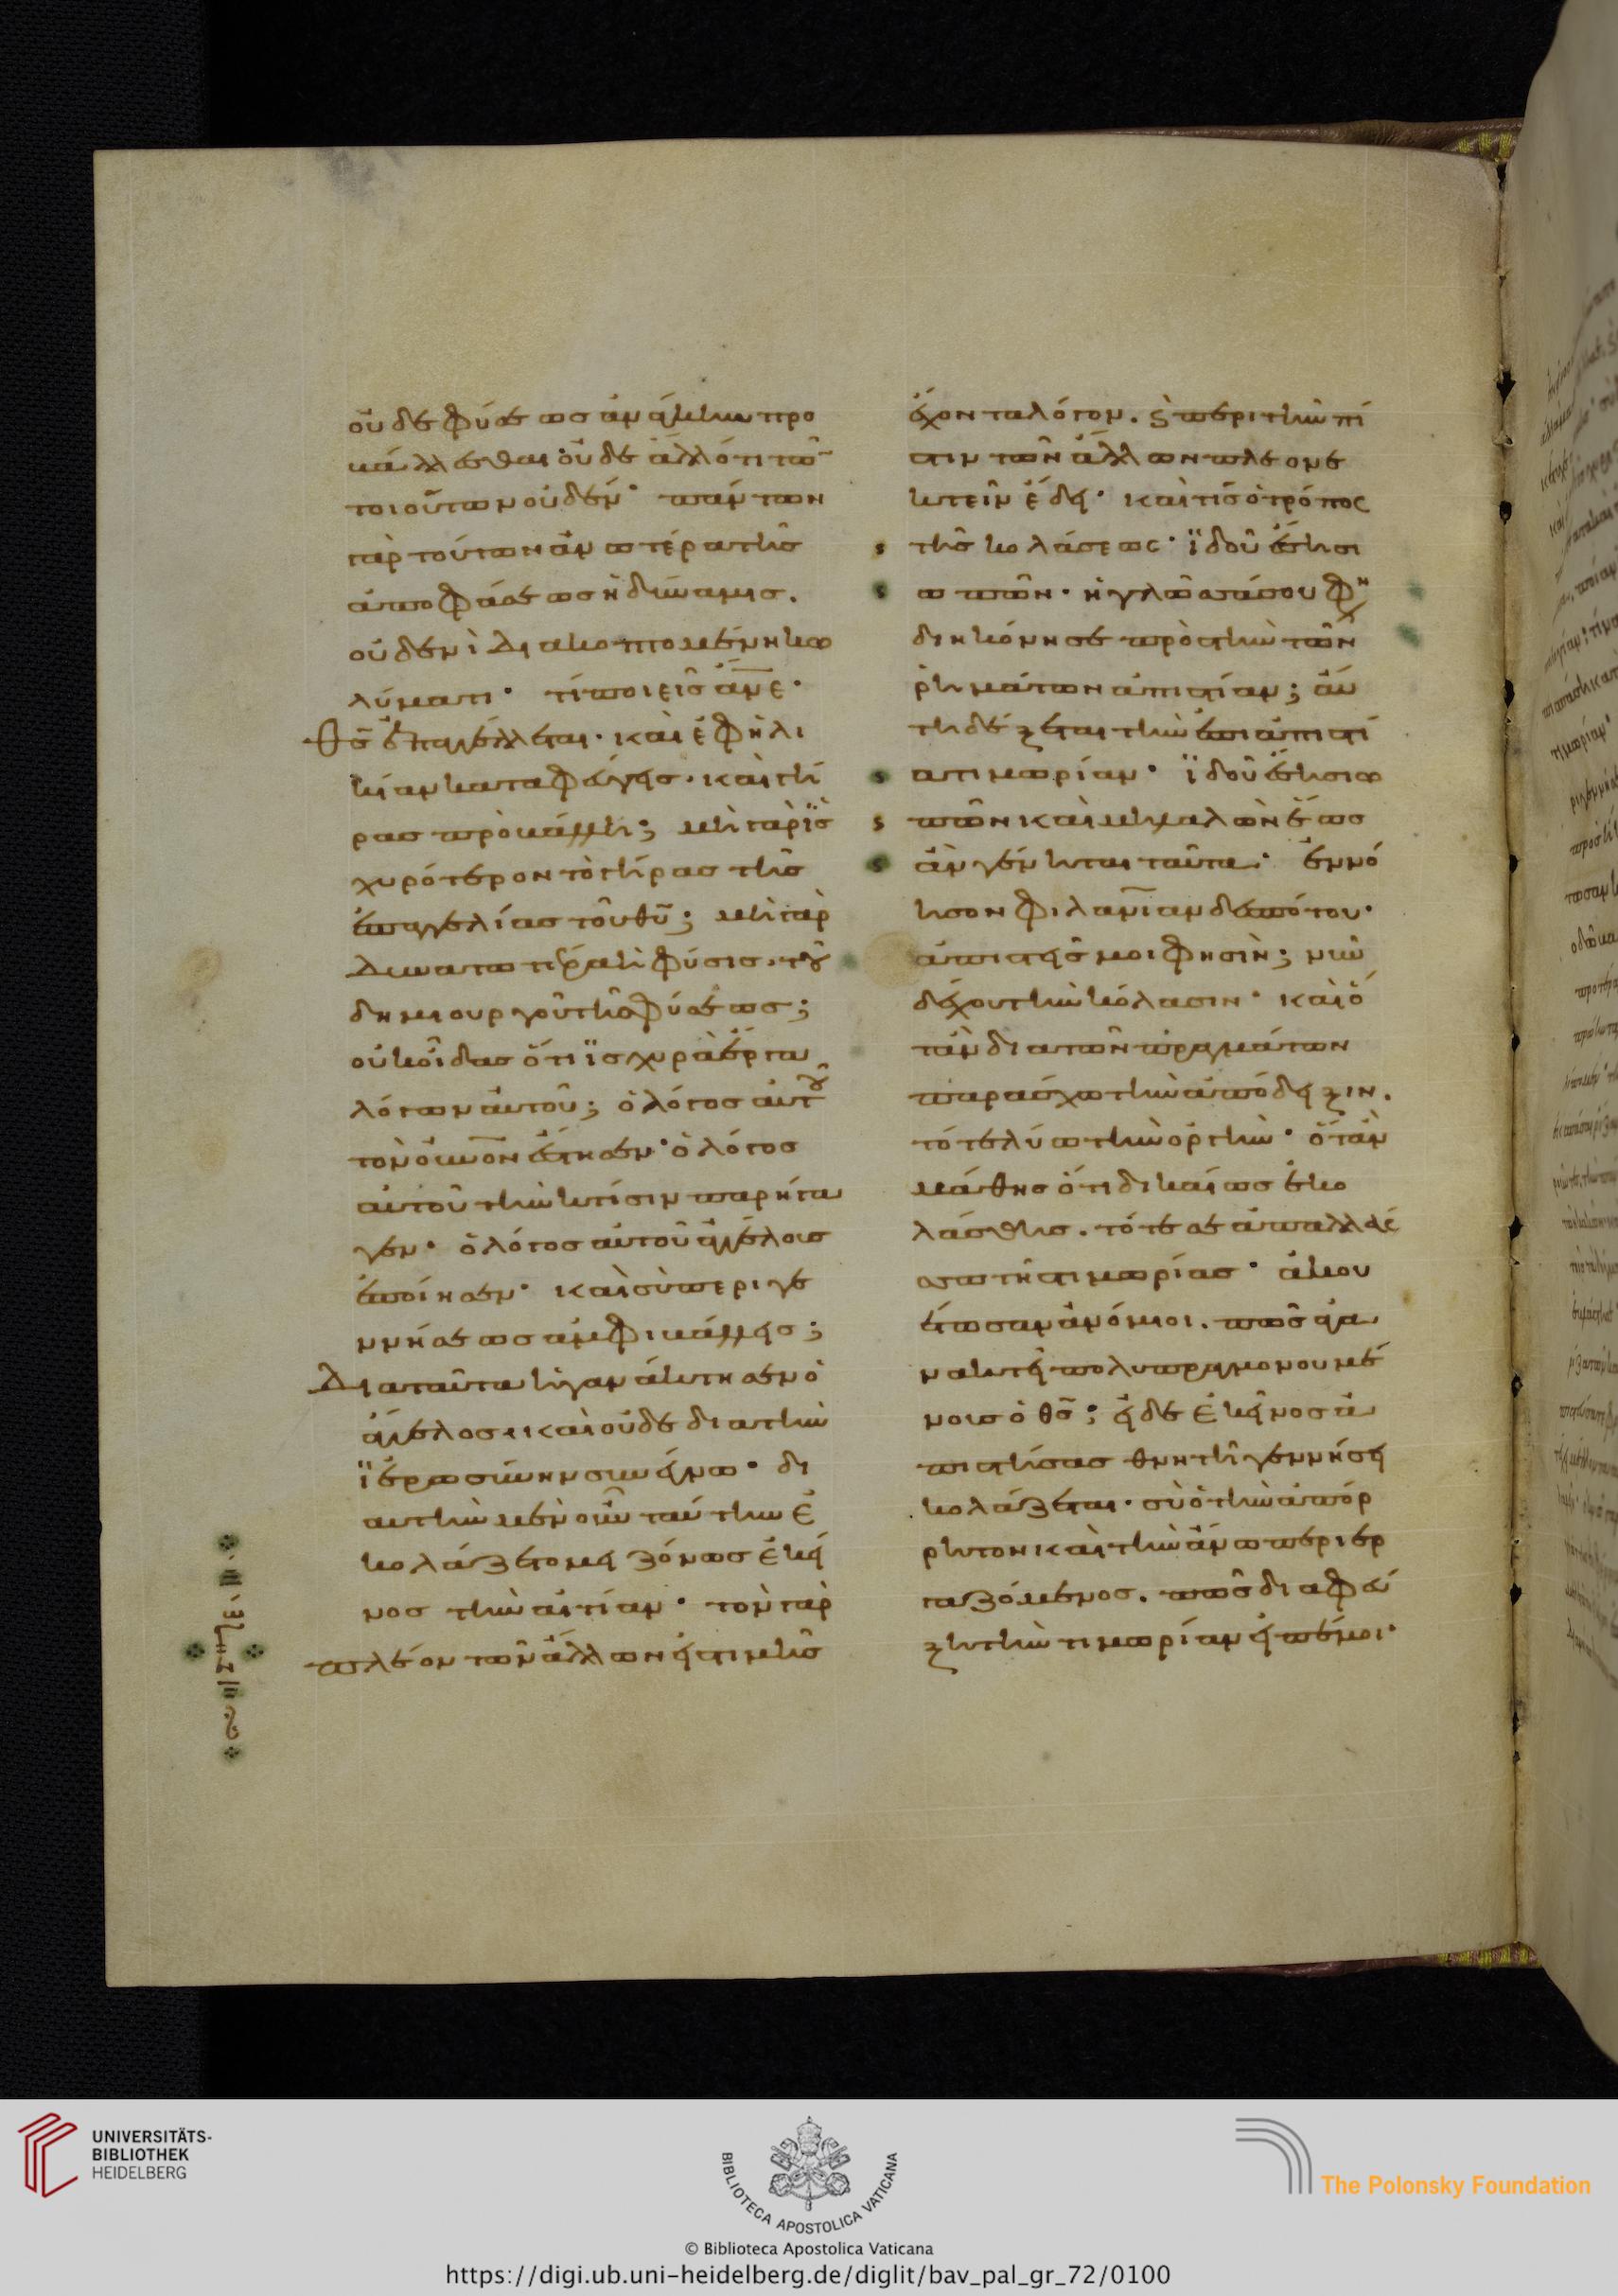 οὐδὲ φύσεως ἀνάγκην προ
βάλλεσθαι οὐδὲ ἄλλό τι τῶ̅
τοιούτων οὐδέν· πάντων
γὰρ τούτων ἀνωτέρα τῆσ
ἀποφάσεωσ ἡ δύναμισ.
οὐδενὶ διακοπτομένη κω
λύματι· τί ποιεῖσ ἄν̅ε·
Θ̅σ̅ ἐπαγγέλλεται· καὶ ἐφ ἡλι
κίαν καταφεύγεισ· καὶ γῆ
ρασ προβάλλη; μὴ γὰρ ἰσ
χυρότερον τὸ γῆρασ τῆσ
ἐπαγγελίασ τοῦ θῦ; μὴ γὰρ
δυνατωτέρα ἡ φύσισ τοῦ
δημιουργοῦ τῆσ φύσεωσ;
οὐκ οἶδασ ὅτι ἰσχυρὰ ἔργα
λόγων αὐτοῦ; ὁ λόγοσ αὐτοῦ
τὸν οὐν̅ον ἔστησεν· ὁ λόγοσ
αὐτοῦ τὴν κτίσιν παρήγα
γεν· ὁ λόγοσ αὐτοῦ ἀγγέλουσ
ἐποίησεν· καὶ σὺ περὶ γε
ννήσεωσ ἀμφιβάλλεισ;
Διὰ ταῦτα ἠγανάκτησεν ὁ
ἄγγελοσ· καὶ οὐδὲ διὰ τὴν
ἱερωσύνην συνέγνω· δι
ατὴν μὲν οὖν ταύτην ἐ
κολάζετο μειζόνωσ ἐκεῖ
νοσ τὴν αἰτίαν· τὸν γὰρ
πλέον τῶν ἄλλων εἰσ τιμῆσ
ἔχοντα λόγον. ϛ περὶ τὴν πί
στιν τῶν ἄλλων πλεονε
κτεῖν ἔδει· καὶ τίσ ὁ τρόποσ
τῆσ κολάσεωσ· ἰδοῦ ἔση σι
ωπῶν· ἡ γλῶσσά σου φη
διηκόνησε πρὸσ τὴν τῶν
ῥημάτων ἀπιστίαν; αὐ
τὴ δέξεται τὴν ἐπὶ ἀπιστί
α τιμωρίαν· ἰδοῦ ἔση σιω
πῶν καὶ μὴ λαλῶν ἕωσ
ἂν γένηται ταῦτα· ἐννό
ησον φιλανίαν δεσπότου·
ἀπιστεῖσ μοι φησὶν; νῦν
δέχου τὴν κόλασιν· καὶ ὅ
ταν διατῶν πραγμάτων
παράσχω τὴν ἀπόδειξιν.
τότε λύω τὴν ὀργὴν· ὅταν
μάθησ ὅτι δικαίωσ ἐκο
λάσθησ. τότε σε ἀπαλλάσ
σω τῆσ τιμωρίασ· ἀκου
έτωσαν ἀνόμοιοι. πῶσ ἀγα
νακτεῖ πολυπραγμονουμέ
νοισ ὁ θσ̅; εἰ δὲ ἐκεῖνοσ ἀ
πιστήσασ θνητῆ γεννήσει
κολάζεται· σὺ ὁ τὴν ἀπόρ
ρητον καὶ τὴν ἄνω περιερ
γαζόμενοσ. πῶσ διαφεύ
ξη τὴν τιμωρίαν εἰπέ μοι·
UNIVERSITÄTS-
BIBLIOTHEK
HEIDELBERG
BIBLIOTECA APOSTOLICA VATICANA
The Polonsky Foundation
© Biblioteca Apostolica Vaticana
https://digi.ub.uni-heidelberg.de/diglit/bav_pal_gr_72/0100